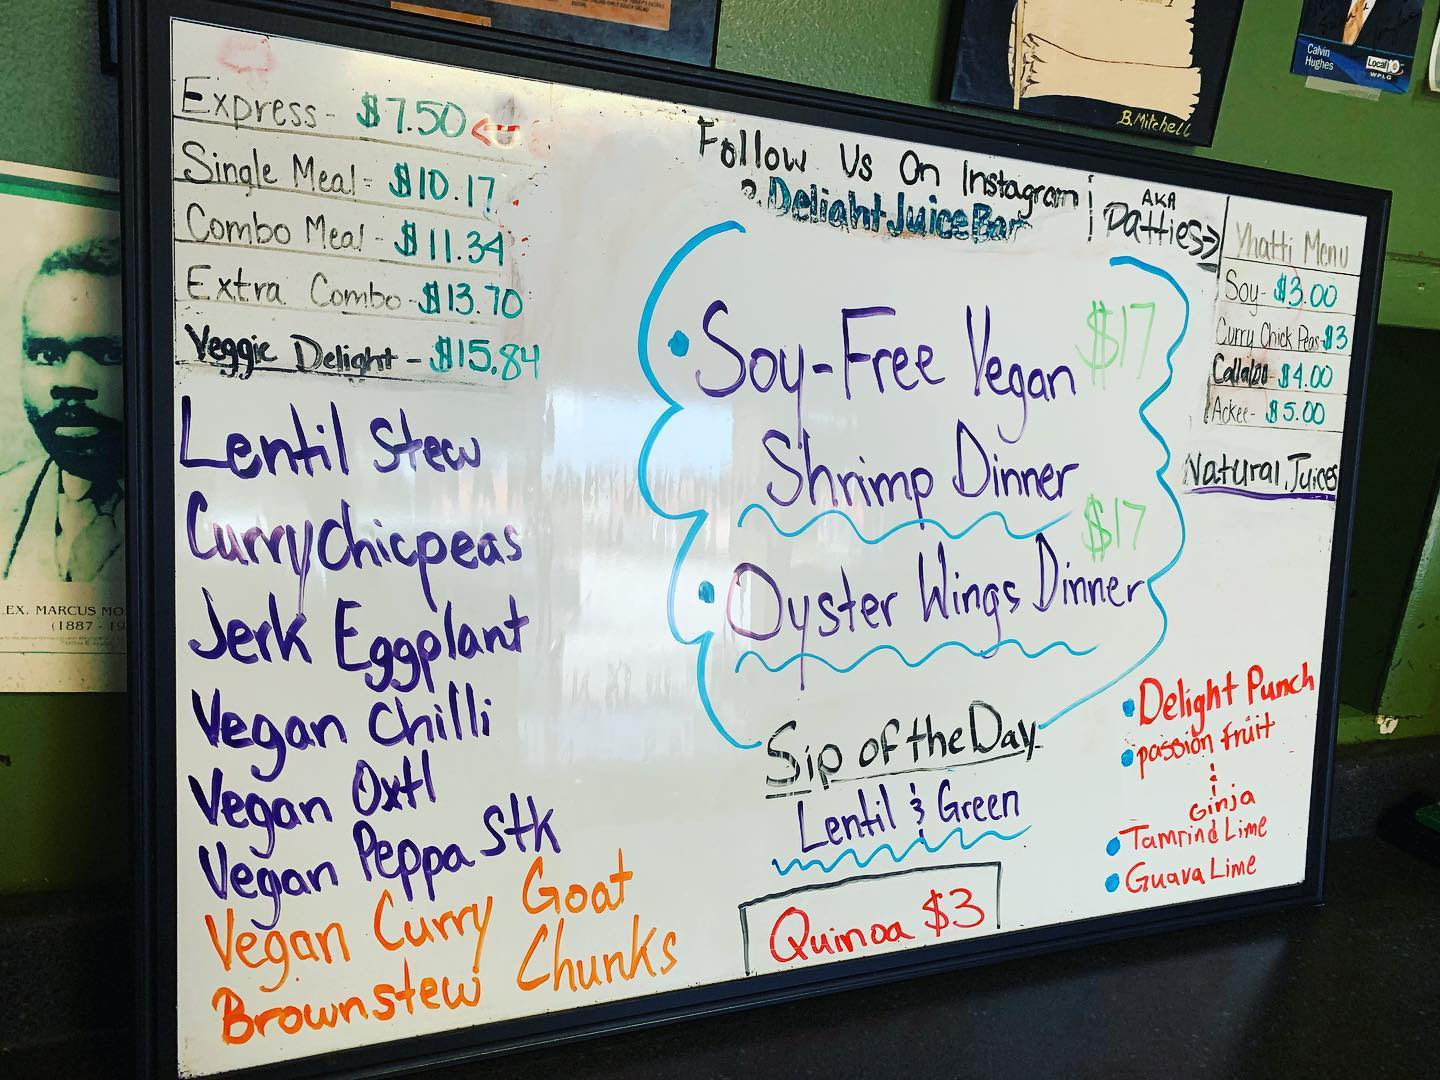 Calvin
Hughes
Local 10
WPLG
B. Mitchell
Express - $7.50
Single Meal - $10.17
Combo Meal - $11.34
Extra Combo - $13.70
Veggie Delight - $15.84
Lentil Stew
Curry chicpeas
Jerk Eggplant
Vegan Chilli
Vegan Oxtl
Vegan Peppa Stk
Vegan Curry Goat
Brownstew Chunks
Follow Us On Instagram
DelightJuiceBar
Soy-Free Vegan $17
Shrimp Dinner
Oyster Wings Dinner $17
Sip of the Day
Lentil & Green
Quinoa $3
AKA
Patties→
Yhatti Menu
Soy - $3.00
Curry Chick Peas - $3
Callaloo - $4.00
Ackee - $5.00
Natural Juices
Delight Punch
passion fruit
Ginja
Tamrind Lime
Guava Lime
EX. MARCUS MO
(1887 - 19